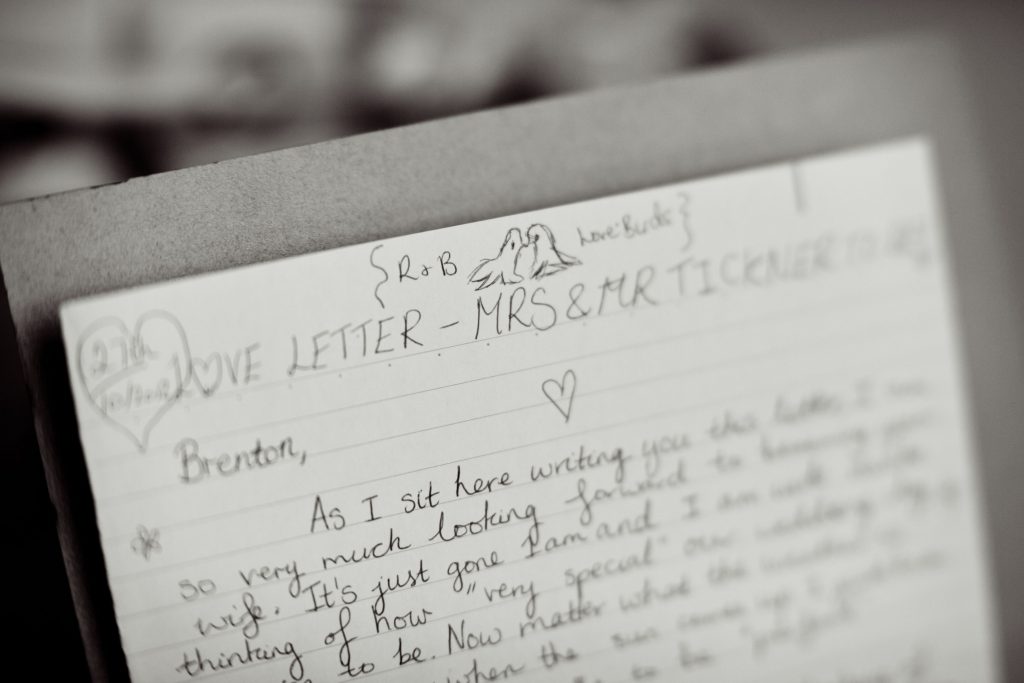 {R & B Love Birds}
LOVE LETTER - MRS & MR TICKNER TO BE
27th
10/2012
Brenton,
As I sit here writing you this letter I am
so very much looking forward to becoming your
wife. It's just gone 1am and I am wide awake
thinking of how "very special" our wedding day is
to be. Now matter what the weather is
when the sun comes up
to be "perfect"